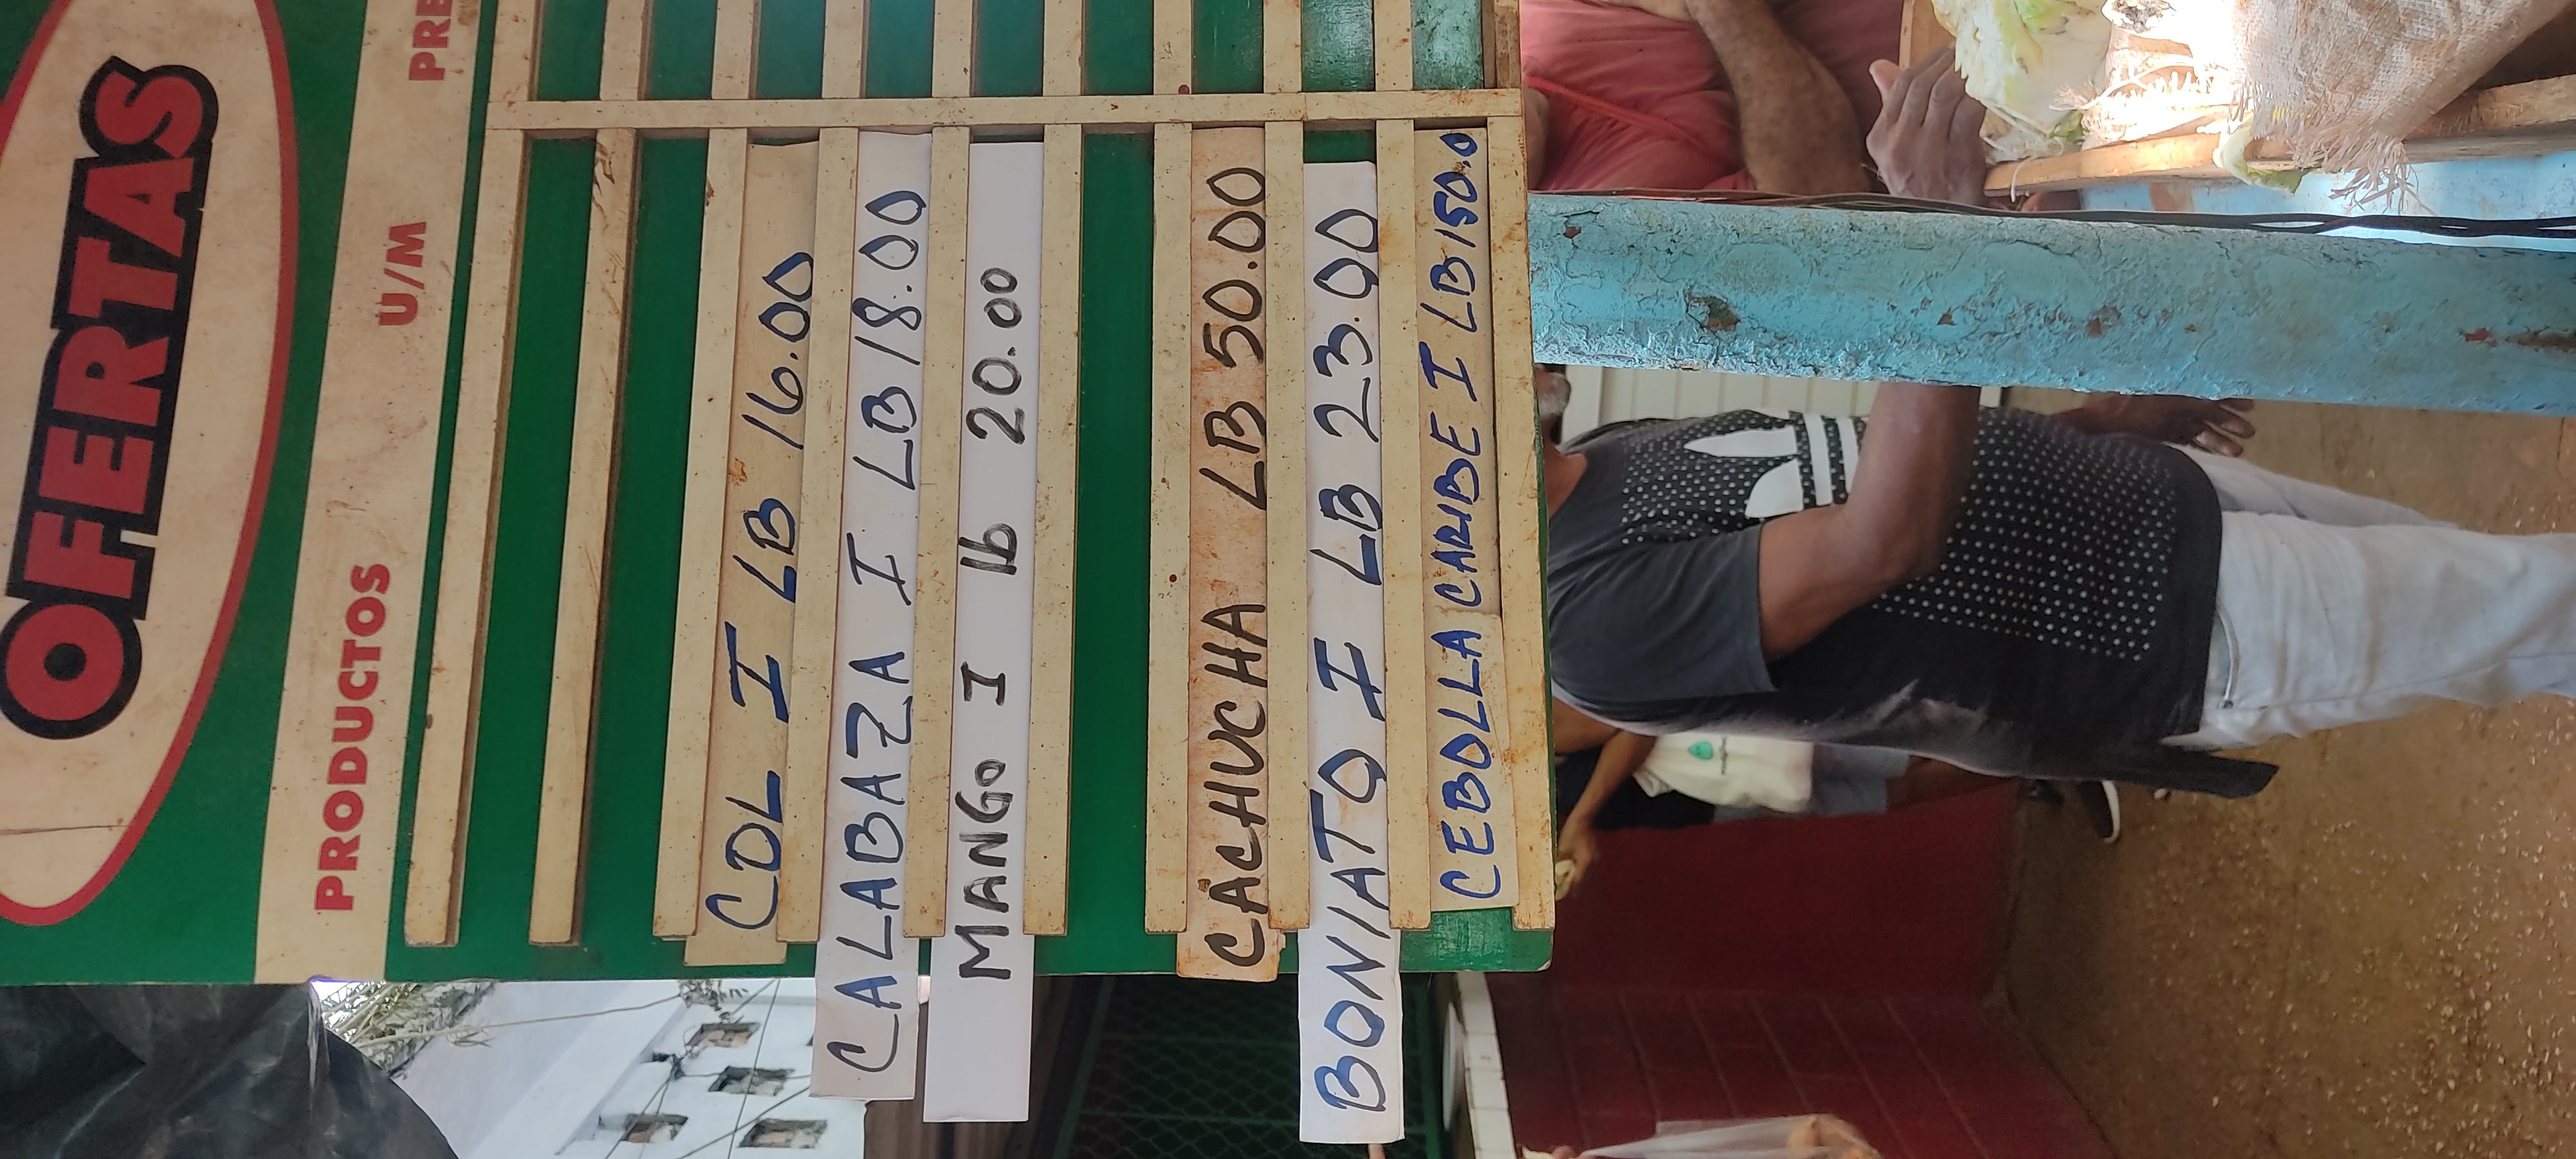 OFERTAS
PRODUCTOS U/M PRE
COL I LB 16.00
CALABAZA I LB 18.00
MANGO I lb 20.00
CACHUCHA LB 50.00
BONIATO I LB 23.00
CEBOLLA CARIBE I LB 150.0